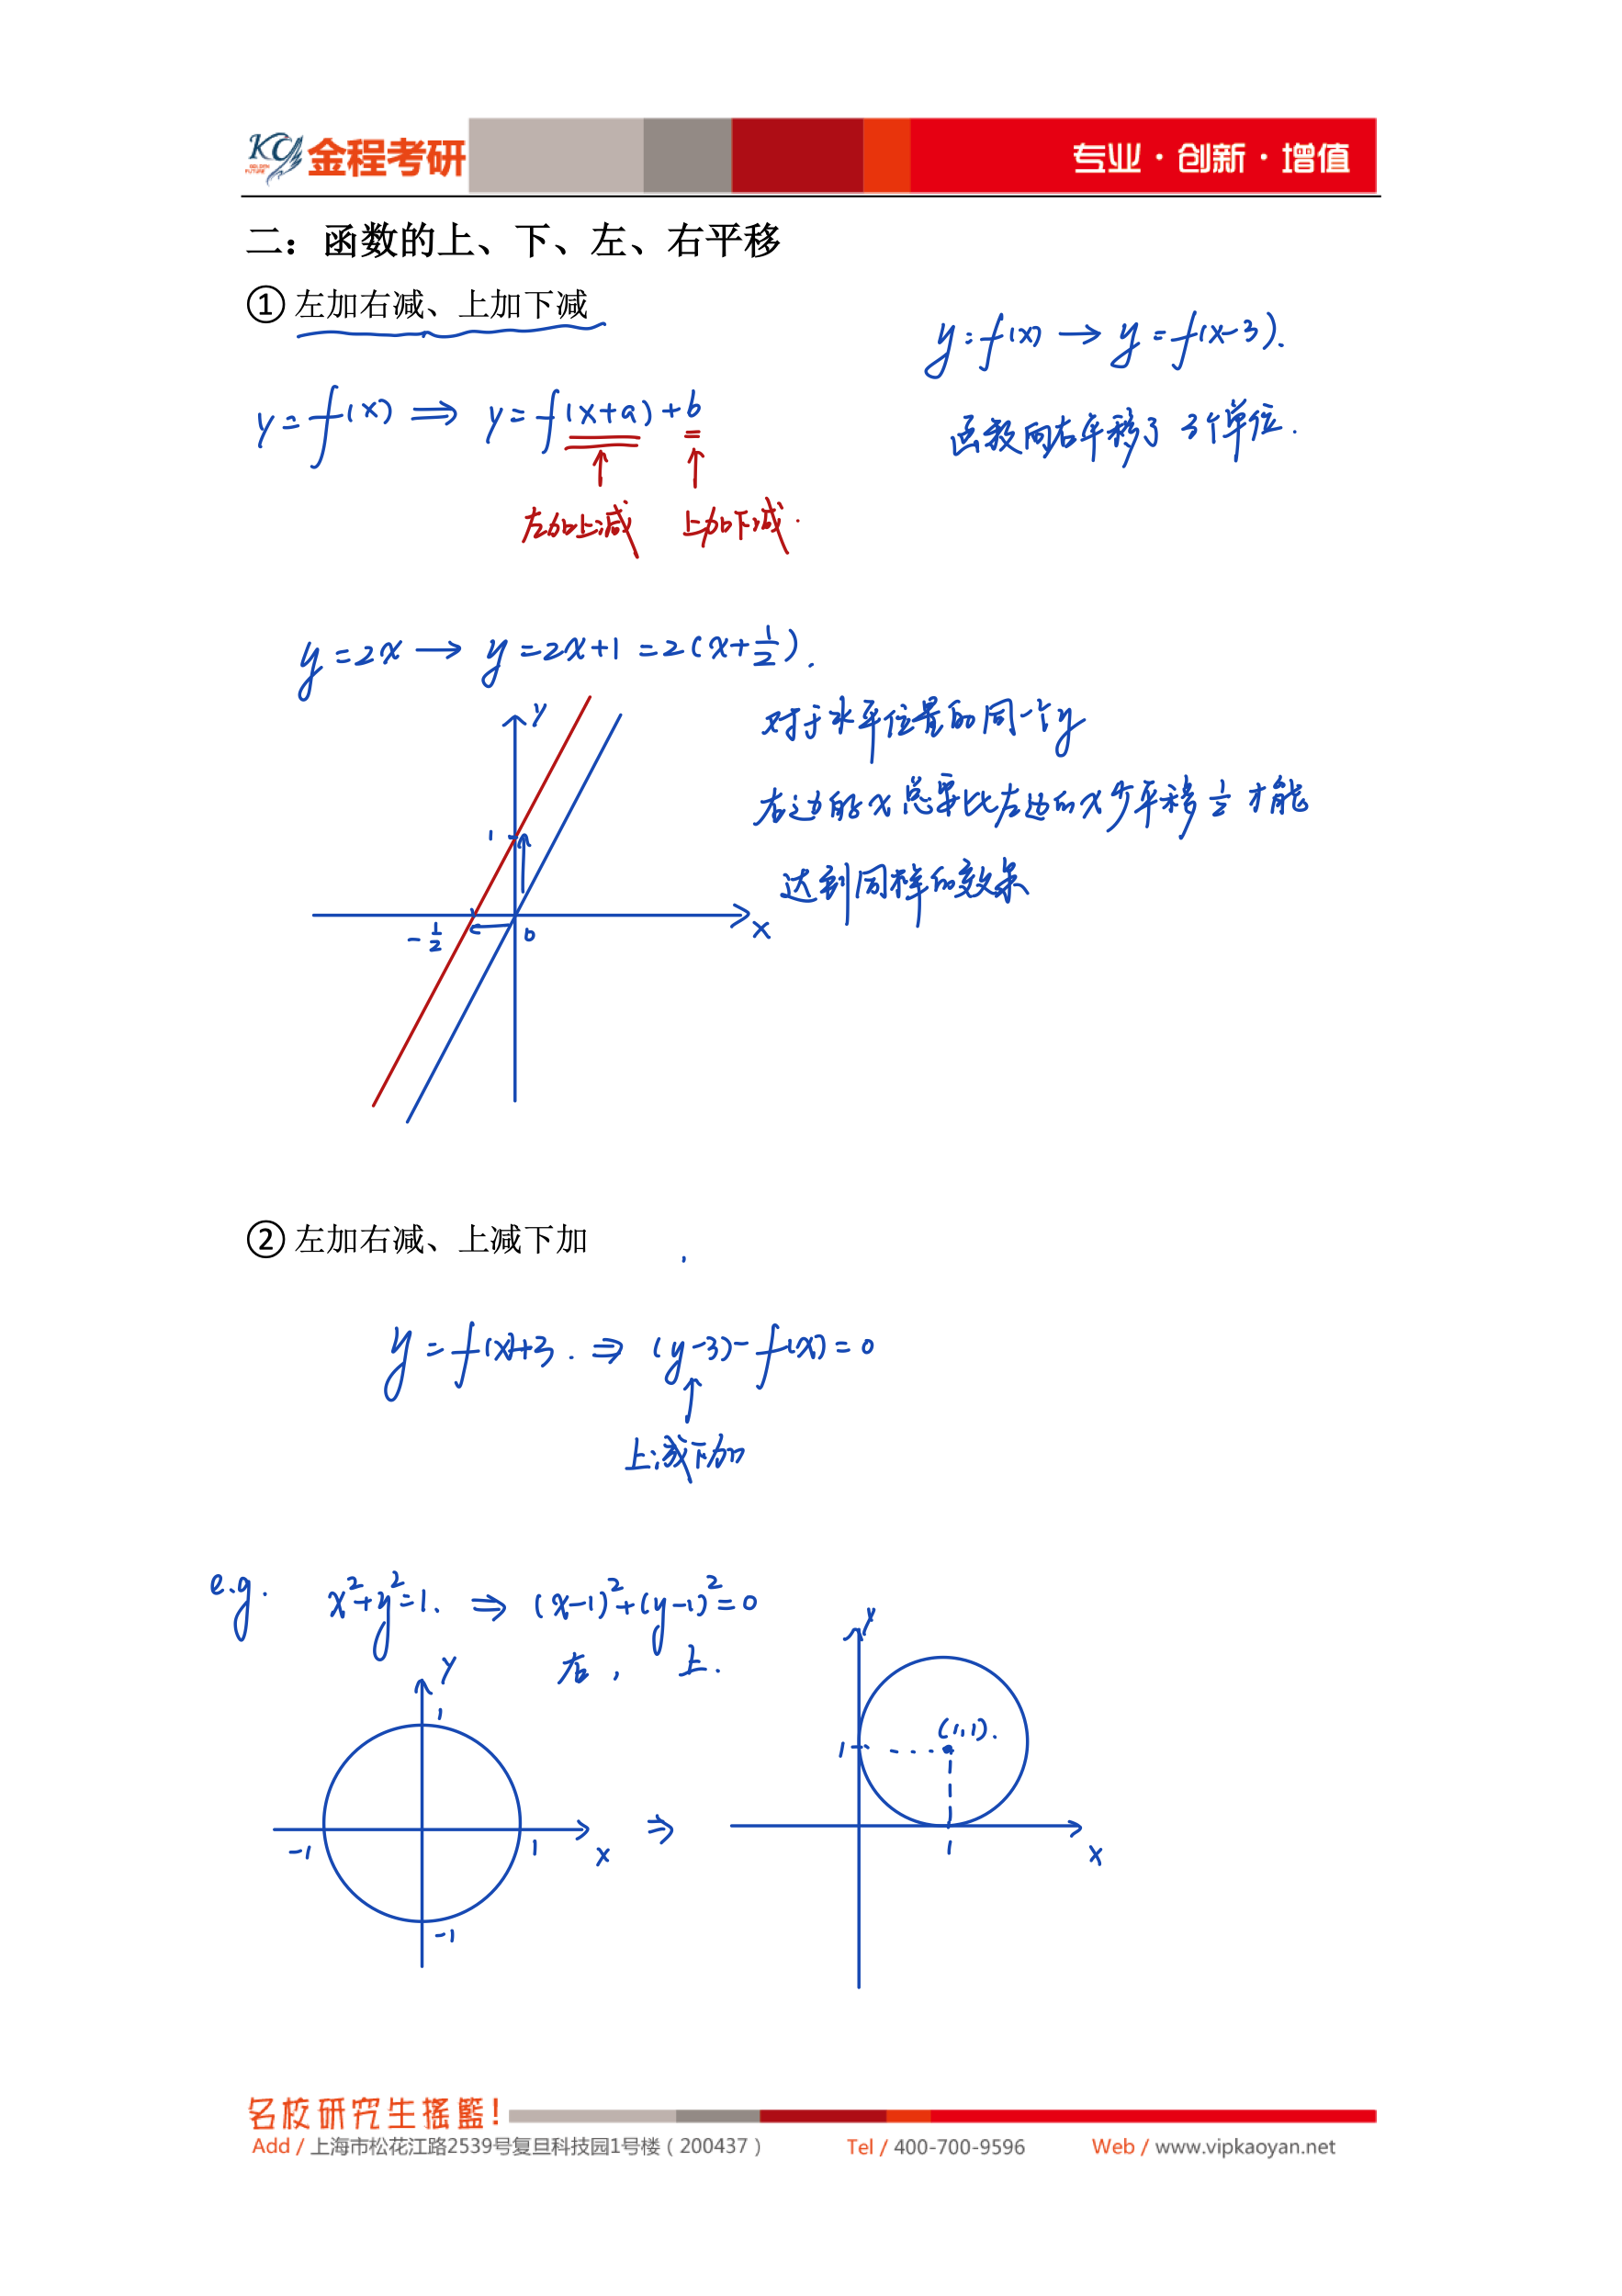 KC 金程考研 专业·创新·增值
GOLDEN FUTURE
二：函数的上、下、左、右平移
① 左加右减、上加下减
y=f(x) → y=f(x-3).
y=f(x) ⇒ y=f(x+a)+b
函数向右平移了 3个单位.
左加上减 上加下减.
y=2x → y=2x+1 =2(x+1/2).
y
对于水平位置的同一个y
右边的x总要比左边的x少平移 1/2 才能
1
达到同样的效果
-1/2 0 x
② 左加右减、上减下加
y=f(x)+3. ⇒ (y-3)-f(x)=0
上减下加
e.g. x²+y²=1. ⇒ (x-1)²+(y-1)²=0
右, 上.
y
y
1
(1,1).
1
-1 1 x ⇒ 1 x
-1
名校研究生摇篮！
Add / 上海市松花江路2539号复旦科技园1号楼（200437） Tel / 400-700-9596 Web / www.vipkaoyan.net